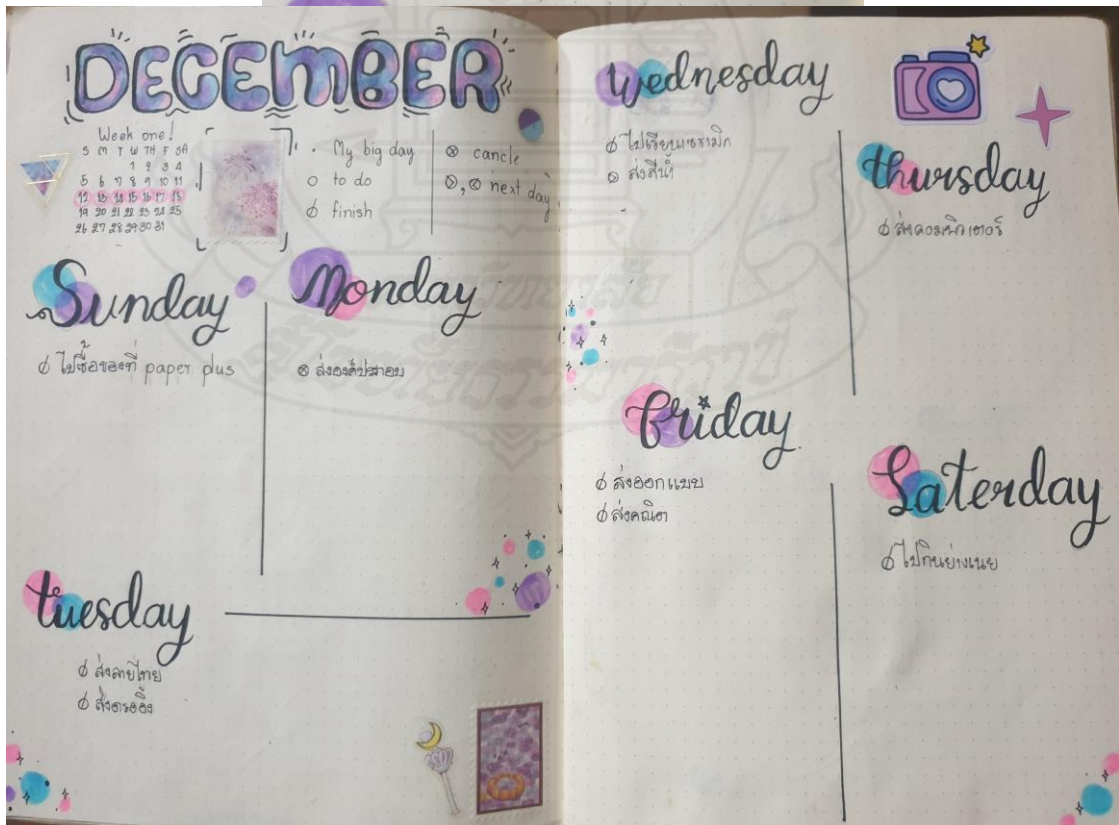 DECEMBER
Week one!
S M T W TH F SA
1 2 3 4
5 6 7 8 9 10 11
12 13 14 15 16 17 18
19 20 21 22 23 24 25
26 27 28 29 30 31
. My big day
o to do
ϕ finish
⊗ cancle
⊗,⊗ next day
Sunday
ϕ ไปซื้อของที่ paper plus
Monday
⊗ ส่งองค์ประกอบ
tuesday
ϕ ส่งลายไทย
ϕ ส่งดรออิ้ง
Wednesday
ϕ ไปเรียนเซรามิก
⊗ ส่งสีน้ำ
thursday
ϕ ส่งคอมพิวเตอร์
friday
ϕ ส่งออกแบบ
ϕ ส่งคณิต
Saterday
ϕ ไปกินย่างเนย